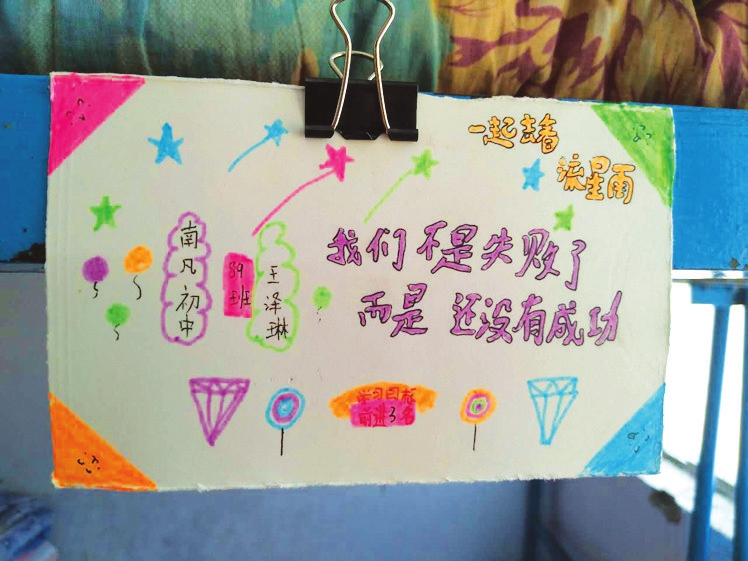 一起去看
流星雨
南凡初中
89
班
王泽琳
我们不是失败了
而是还没有成功
学习目标
前进3名